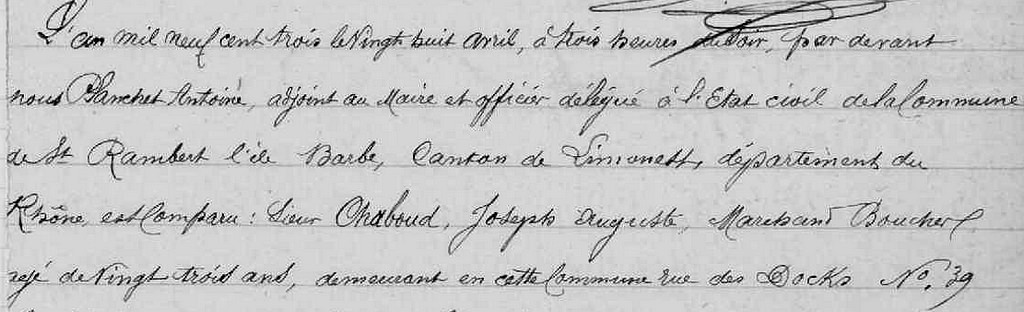 L'an mil neuf cent trois le Vingt huit avril, à trois heures du soir, par devant
nous Planchet Antoine, adjoint au Maire et officier délégué à l'Etat civil de la Commune
de St Rambert l'île Barbe, Canton de Limonest, département du
Rhône, est Comparu : Sieur Chaboud, Joseph Auguste, Marchand Boucher,
agé de Vingt trois ans, demeurant en cette Commune rue des Docks No. 39